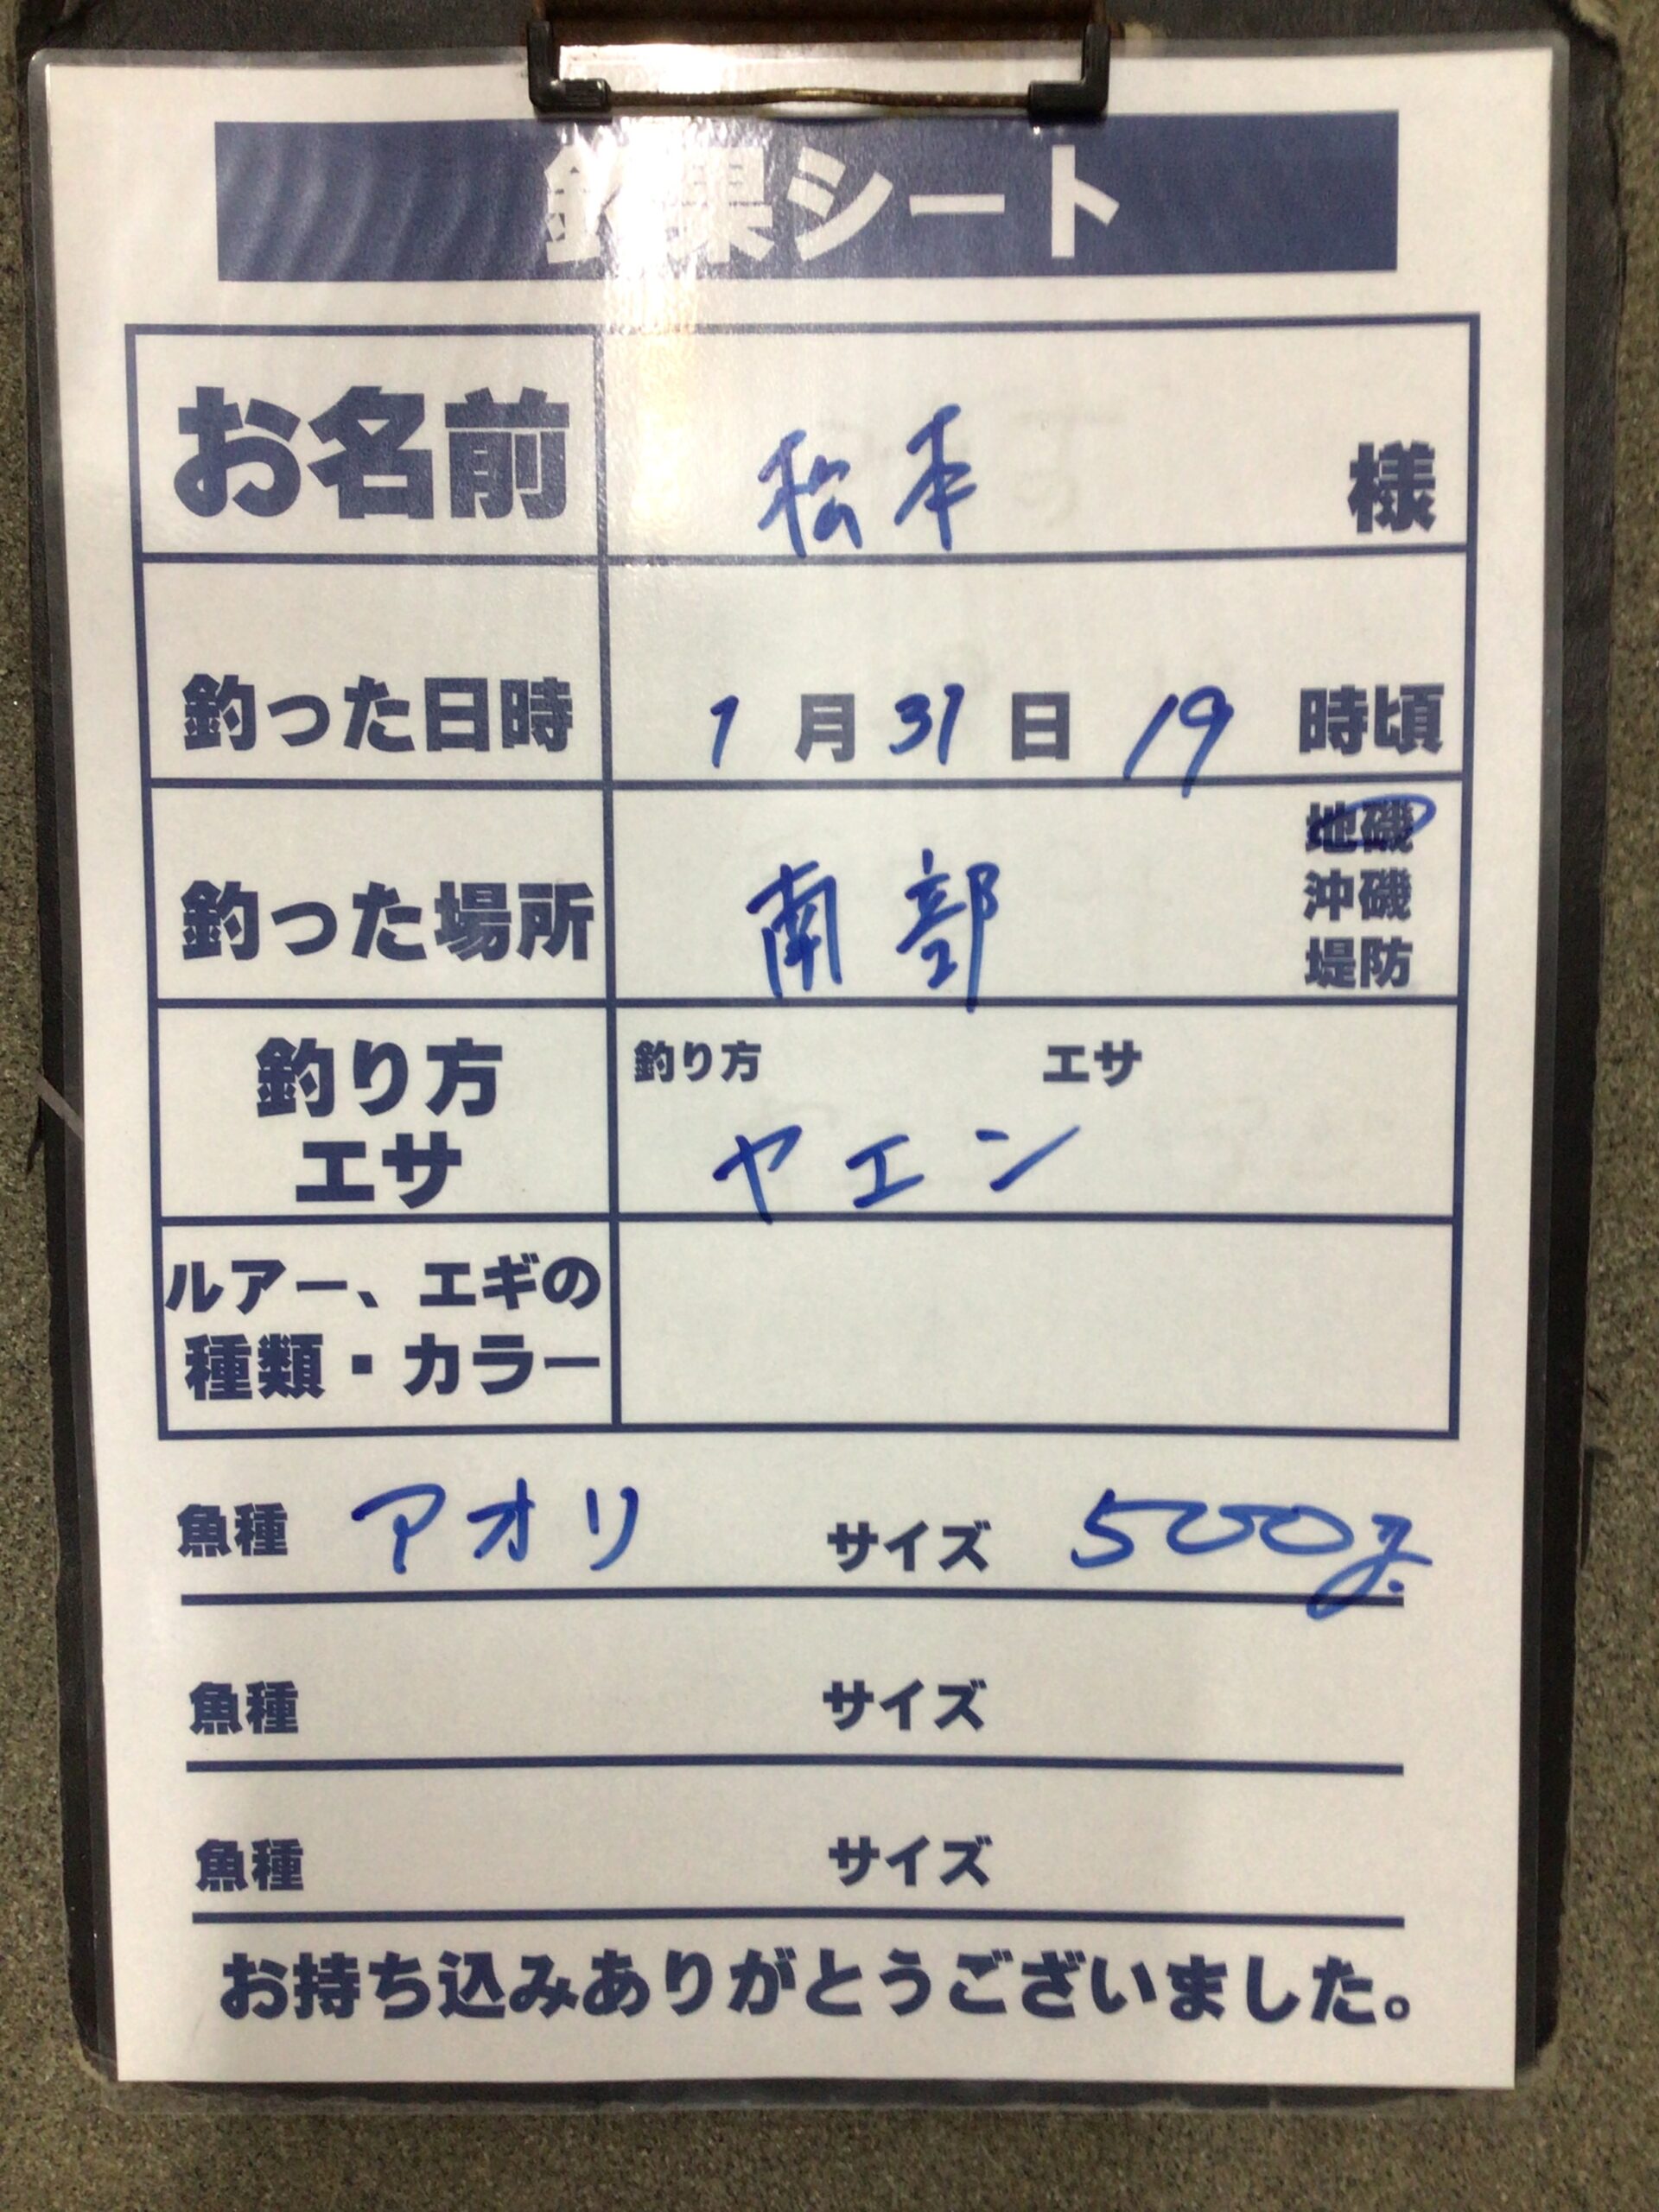 釣果シート
お名前 松本 様
釣った日時 1月31日 19時頃
釣った場所 南部 地磯
沖磯
堤防
釣り方 エサ
釣り方
エサ
ヤエン
ルアー、エギの
種類・カラー
魚種 アオリ サイズ 500g.
魚種 サイズ
魚種 サイズ
お持ち込みありがとうございました。